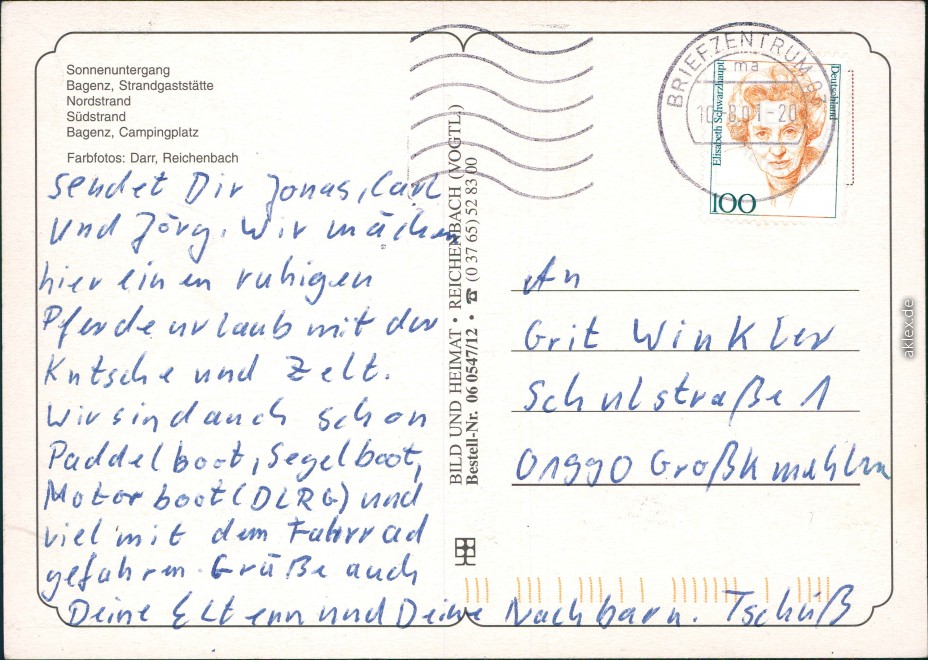 Sonnenuntergang
Bagenz, Strandgaststätte
Nordstrand
Südstrand
Bagenz, Campingplatz
Farbfotos: Darr, Reichenbach
sendet Dir Jonas, Carl
und Jörg. Wir machen
hier einen ruhigen
Pferdeurlaub mit der
Kutsche und Zelt.
Wir sind auch schon
Paddelboot, Segelboot,
Motorboot (DLRG) und
viel mit dem Fahrrad
gefahren. Grüße auch
Deine Eltern und Deine Nachbarn. Tschüß
BILD UND HEIMAT • REICHENBACH (VOGTL)
Bestell-Nr. 06 0547/12 • ☎ (0 37 65) 52 83 00
BRIEFZENTRUM 03
ma
10.8.01-20
Elisabeth Schwarzhaupt
Deutschland
100
An
Grit Winkler
Schulstraße 1
01990 Großkmehlen
aklex.de